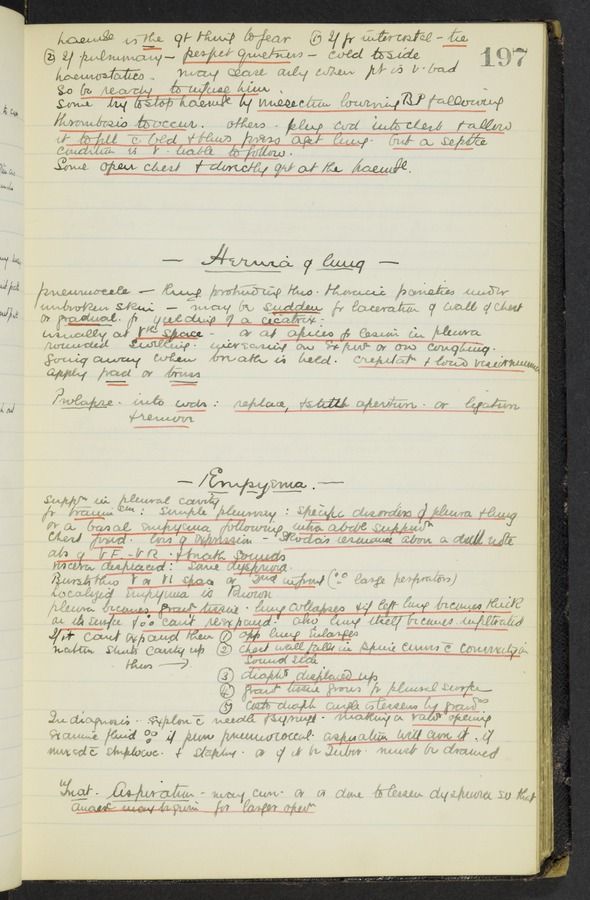 haemge is the gt thing to fear ① If fr intercostal - tie
197
② If pulmonary - perfect quietness - cold to side
haemostatics. may cease only when pt is v. bad
So be ready to infuse him.
Some try to stop haemge by venesection lowering BP + allowing
thrombosis to occur. others. plug wd into chest + allow
it to fill c̄ bld + thus press agst lung. but a septic
condition is v. liable to follow.
Some open chest + directly get at the haemge.
— Hernia of lung —
pneumocele — lung protruding thro. thoracic parietes under
unbroken skin — may be sudden fr laceration of wall of chest
or gradual fr yielding of a cicatrix.
usually at Vth space - or at apices fr lesion in pleura
rounded swelling: increasing on expirn or on coughing.
Going away when breath is held. crepitat + loud vesic murmur
apply pad or truss
Prolapse. into wds: replace, + stitch aperture. or ligature
+ remove
— Empyema. —
Suppn in pleural cavity
fr trauma: Simple pleurisy: specific disorders of pleura + lung
or a basal empyema following intra abdl suppurn
Chest fixd. loss of expansion - Skodaic resonance above a dull note
abs of VF - VR. + breath sounds
viscera displaced: some dyspnoea.
Bursts thro V or VI space or 2nd in front (∵ large perforators)
Localized empyema is known
pleura becomes grant tissue. lung collapses + if left lung becomes thick
on its surface + ∴ can't reexpand: also lung itself becomes infiltrated
If it cant expand then ① opp lung enlarges
nature shuts cavity up ② chest wall falls in spine curves c̄ convexity in
thus ⟶ sound side
③ diaphm displaced up
④ grant tissue grows fr pleural surface
⑤ costo diaph angle is lessened by grans
In diagnosis. explore c̄ needle + syringe. making a valvr opening
Examine fluid ∵ if pure pneumococcal aspiration will cure it. if
mixed c̄ streptococ. + staphy. or if it be tuber. must be drained
Treat. Aspiration - may cure. or is done to lessen dyspnoea so that
anaes may be given for larger opern